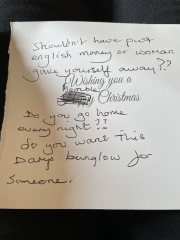 Shouldn't have put
english money or woman
gave yourself away??
Wishing you a
horrible
Christmas
Do you go home
every night??
do you want this
Dam bunglow for
someone.